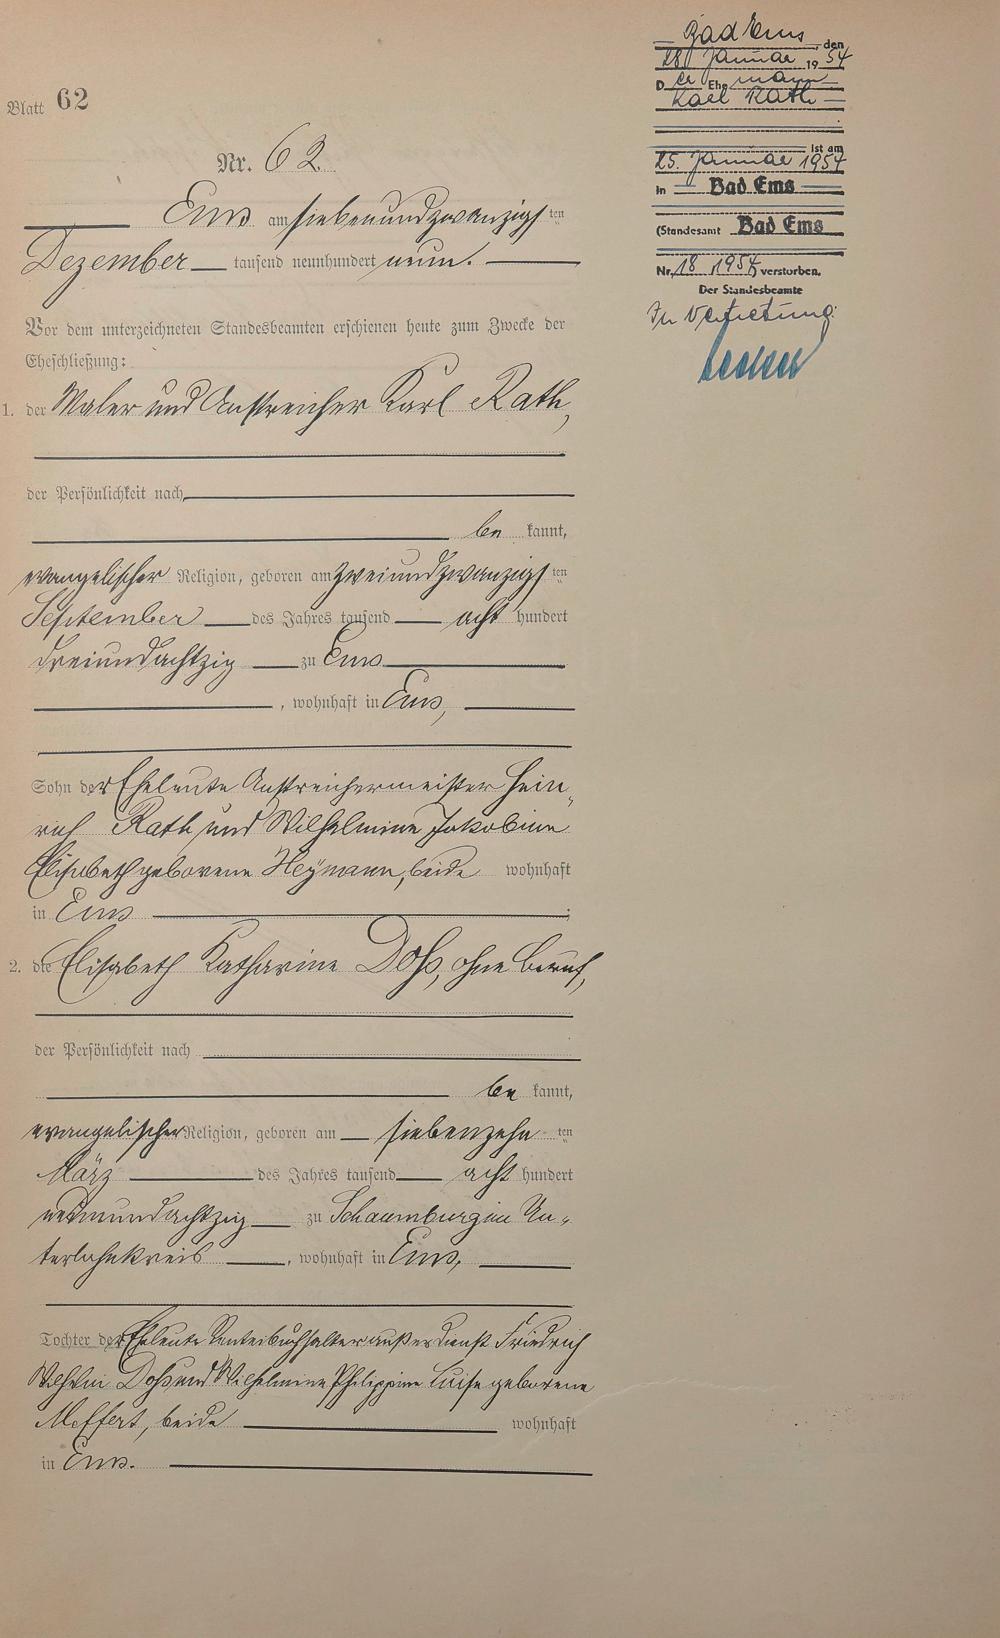 Blatt 62
Nr. 62.
Ems am siebenundzwanzigsten
Dezember tausend neunhundert neun.
Vor dem unterzeichneten Standesbeamten erschienen heute zum Zwecke der
Eheschließung:
1. der Maler und Anstreicher Karl Rath,
der Persönlichkeit nach
be kannt,
evangelischer Religion, geboren am zweiundzwanzigsten
September des Jahres tausend acht hundert
dreiundachtzig zu Ems
, wohnhaft in Ems,
Sohn der Eheleute Anstreichermeister Hein„
rich Rath und Wilhelmine Jakobine
Elisabeth geborene Heymann, beide wohnhaft
in Ems
2. die Elisabeth Katharine Doß, ohne Beruf,
der Persönlichkeit nach
be kannt,
evangelischer Religion, geboren am siebenzehnten
März des Jahres tausend acht hundert
neunundachtzig zu Schaumburg im Un„
terlahnkreis, wohnhaft in Ems,
Tochter der Eheleute Renteibuchhalter außer Dienst Friedrich
Wilhelm Doß und Wilhelmine Philippine Luise geborene
Meffert, beide wohnhaft
in Ems.
Bad Ems, den
28. Januar 1954
D er Ehe mann
Karl Rath
ist am
25. Januar 1954
in Bad Ems
(Standesamt Bad Ems
Nr. 18 / 1954) verstorben.
Der Standesbeamte
In Vertretung: